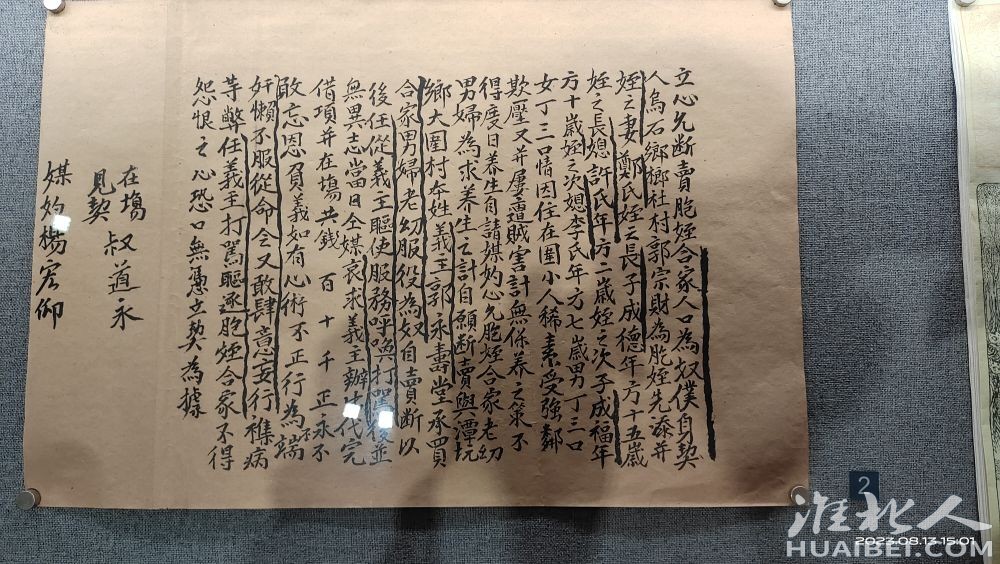 立心允断賣胞姪合家人口為奴僕身契
人烏石鄉鄉社村郭宗財為胞姪先添并
姪之妻鄭氏姪之長子成德年方十五歲
姪之長媳許氏年方二歲姪之次子成福年
方十歲姪之次媳李氏年方七歲男丁三口
女丁三口情因住在圍小人稀素受強鄰
欺壓又并屢遭賊害計無保養之策不
得度日养生自請媒妁心允胞姪合家老幼
男婦為求养生之計自願断賣與潭坑
鄉大圍村本姓義主郭永壽堂承買
合家男婦老幼服役為奴自賣断以
後任從義主驅使服務呼喚打罵後並
無異志當日仝媒哀求義主辦代完
借項并在塲共錢 百 十 千 正永不
敢忘恩負義如有心術不正行為不端
奸懶不服從命令又敢肆意妄行襍病
等弊任義主打罵驅逐胞姪合家不得
怨恨之心恐口無憑立契為據
在塲
見契 叔道永
媒妁楊宏仰
2
淮北人
2023.08.13 15:01
HUAIBEI.COM